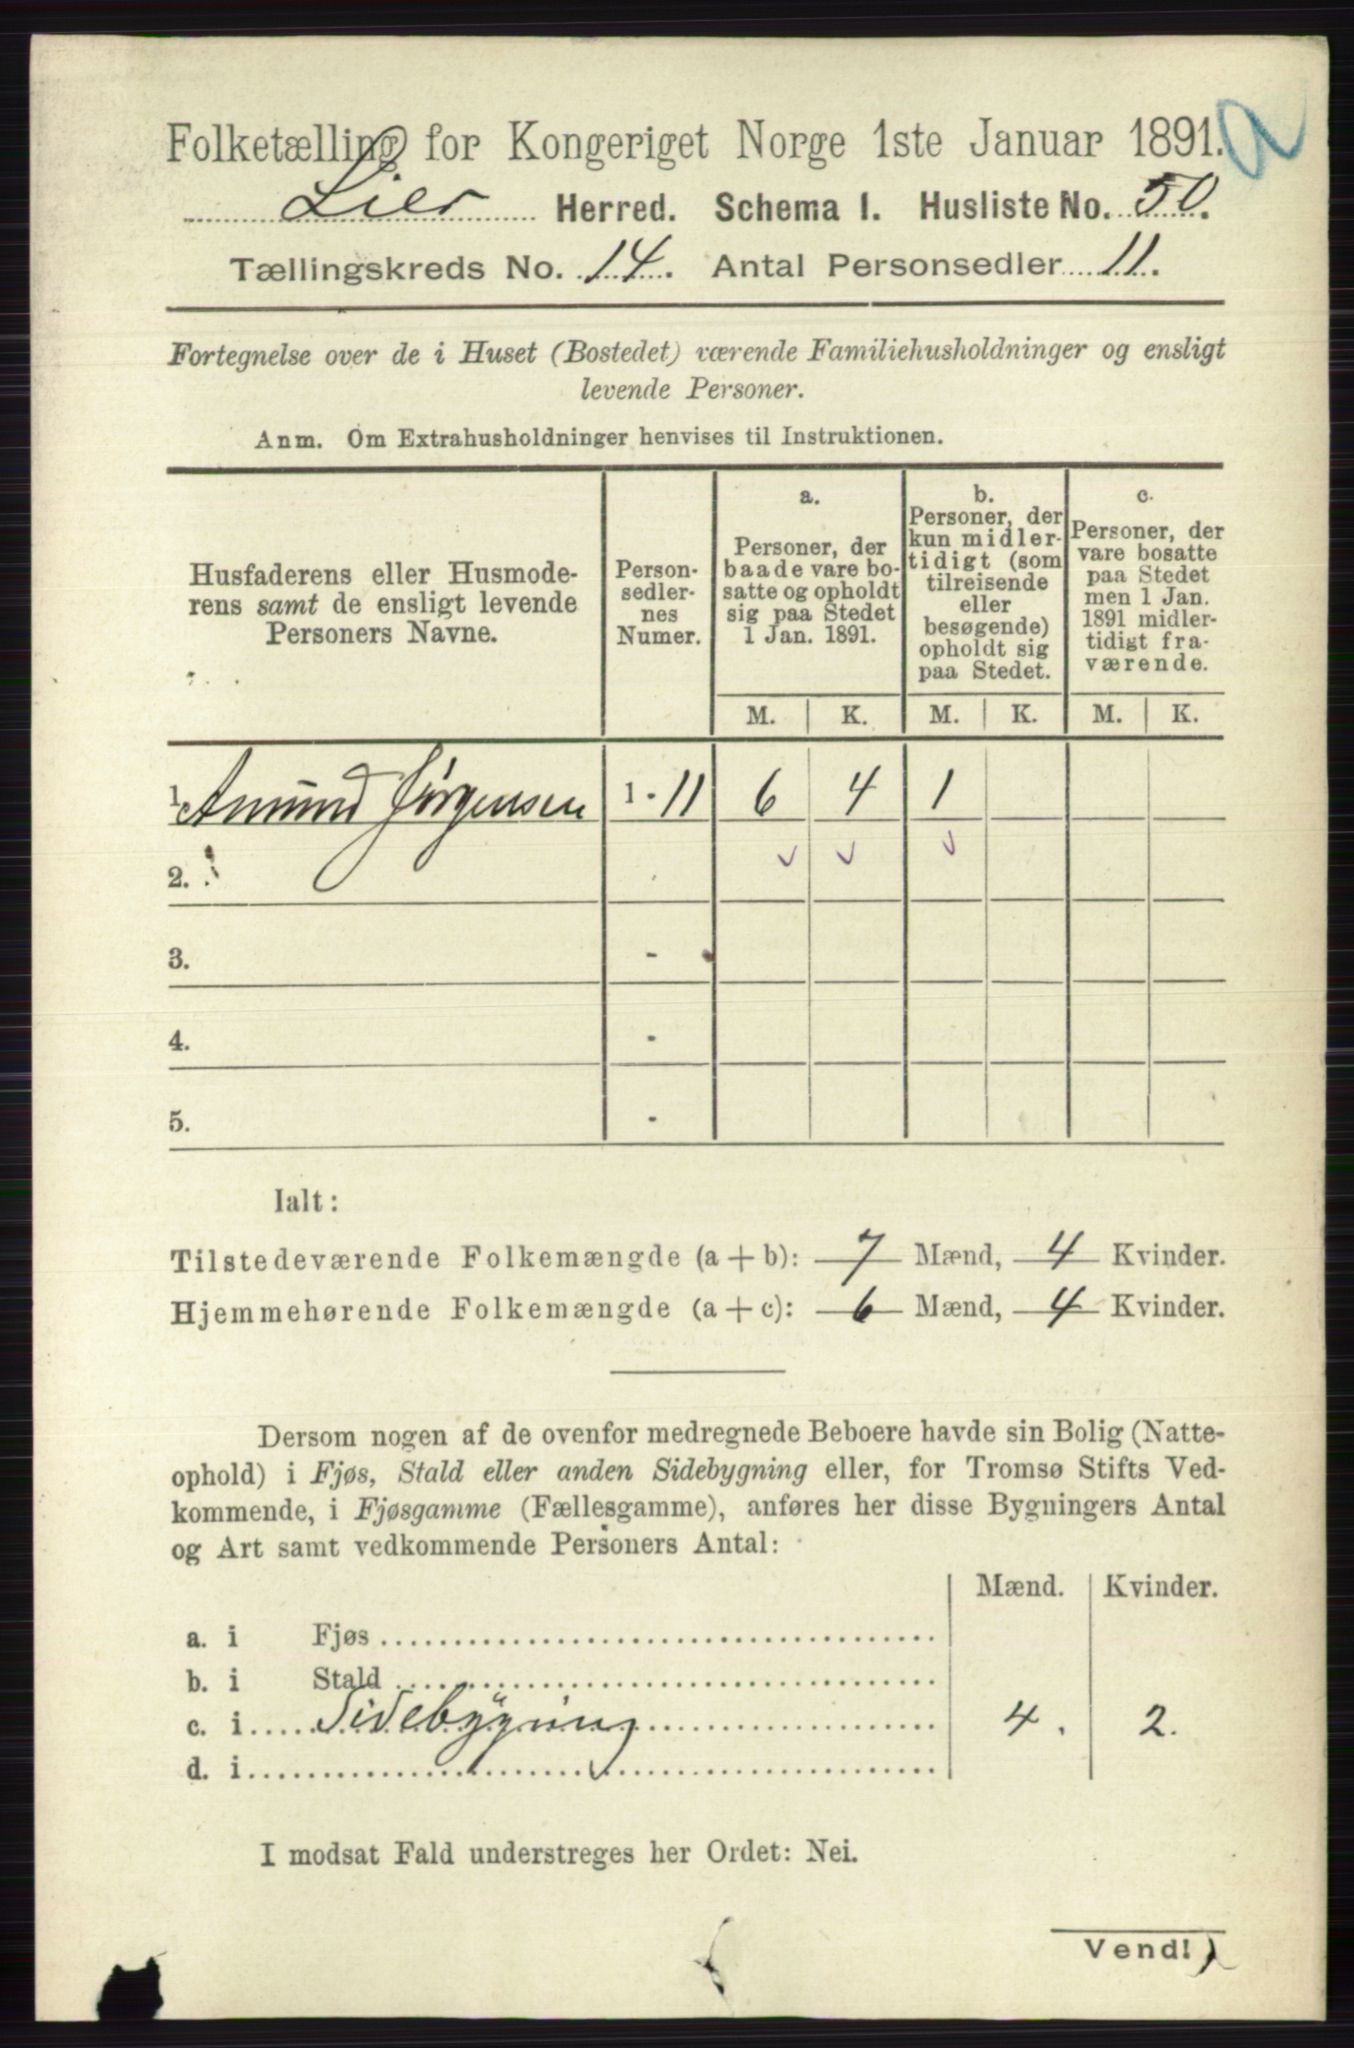 Folketælling for Kongeriget Norge 1ste Januar 1891.
Lier Herred. Schema I. Husliste No. 50.
Tællingskreds No. 14. Antal Personsedler 11.
Fortegnelse over de i Huset (Bostedet) værende Familiehusholdninger og ensligt
levende Personer.
Anm. Om Extrahusholdninger henvises til Instruktionen.
Husfaderens eller Husmode-
rens samt de ensligt levende
Personers Navne.
Person-
sedler-
nes
Numer.
a.
Personer, der
baade vare bo-
satte og opholdt
sig paa Stedet
1 Jan. 1891.
b.
Personer, der
kun midler-
tidigt (som
tilreisende
eller
besøgende)
opholdt sig
paa Stedet.
c.
Personer, der
vare bosatte
paa Stedet
men 1 Jan.
1891 midler-
tidigt fra-
værende.
M. K. M. K. M. K.
1. Amund Jørgensen 1 - 11 6 4 1
2.
3. -
4. -
5. -
Ialt:
Tilstedeværende Folkemængde (a + b): 7 Mænd, 4 Kvinder.
Hjemmehørende Folkemængde (a + c): 6 Mænd, 4 Kvinder.
Dersom nogen af de ovenfor medregnede Beboere havde sin Bolig (Natte-
ophold) i Fjøs, Stald eller anden Sidebygning eller, for Tromsø Stifts Ved-
kommende, i Fjøsgamme (Fællesgamme), anføres her disse Bygningers Antal
og Art samt vedkommende Personers Antal:
Mænd. Kvinder.
a. i Fjøs
b. i Stald
c. i Sidebygning 4. 2.
d. i
I modsat Fald understreges her Ordet: Nei.
Vend!